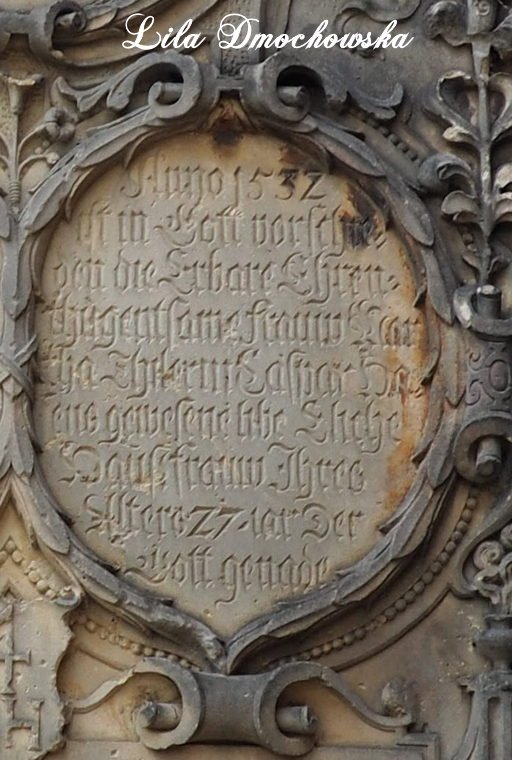 Lila Dmochowska
Anno 1532
ist in Gott vorschie⸗
den die Erbare Ehren⸗
thugentsame frauw Mar
tha Caspar Ha⸗
ens gewesene libe Eliche
Hausfrauw Ihres
Alters 27 iar Der
Gott genade
H